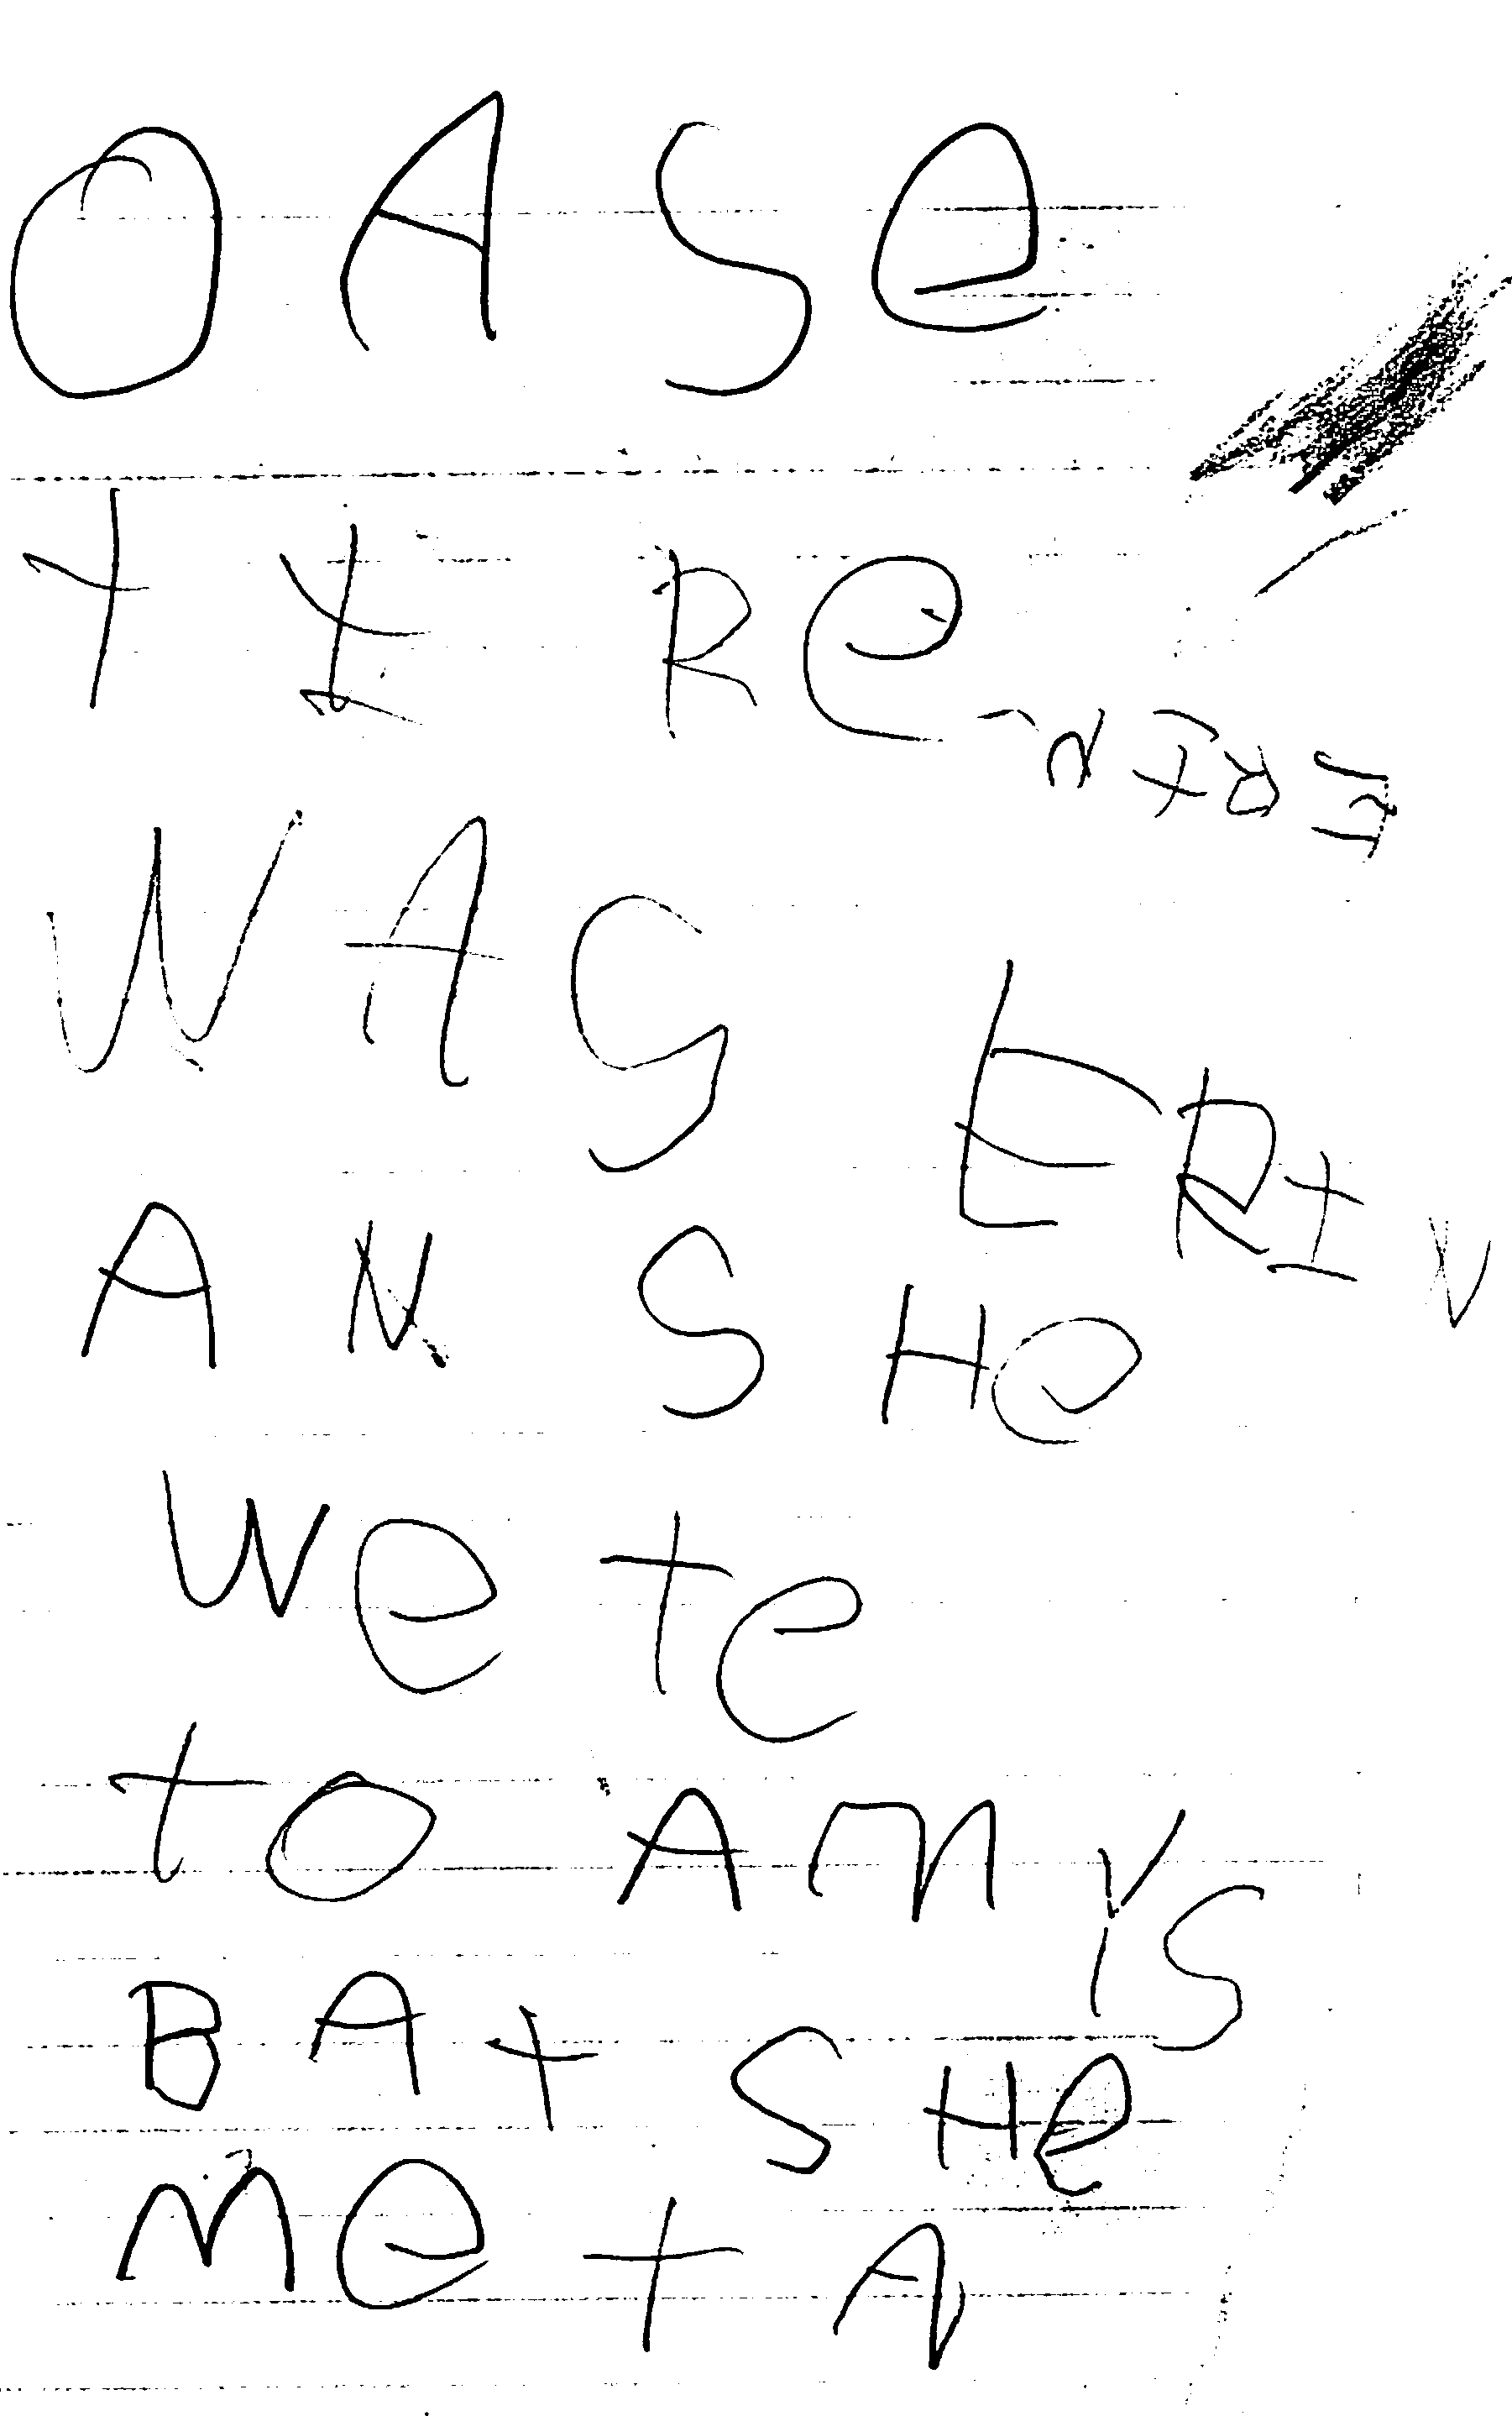 OASe
tIRe
ERIN
WAS
ERIN
AN SHe
We te
tO AMYS
BAt SHe
Me t A